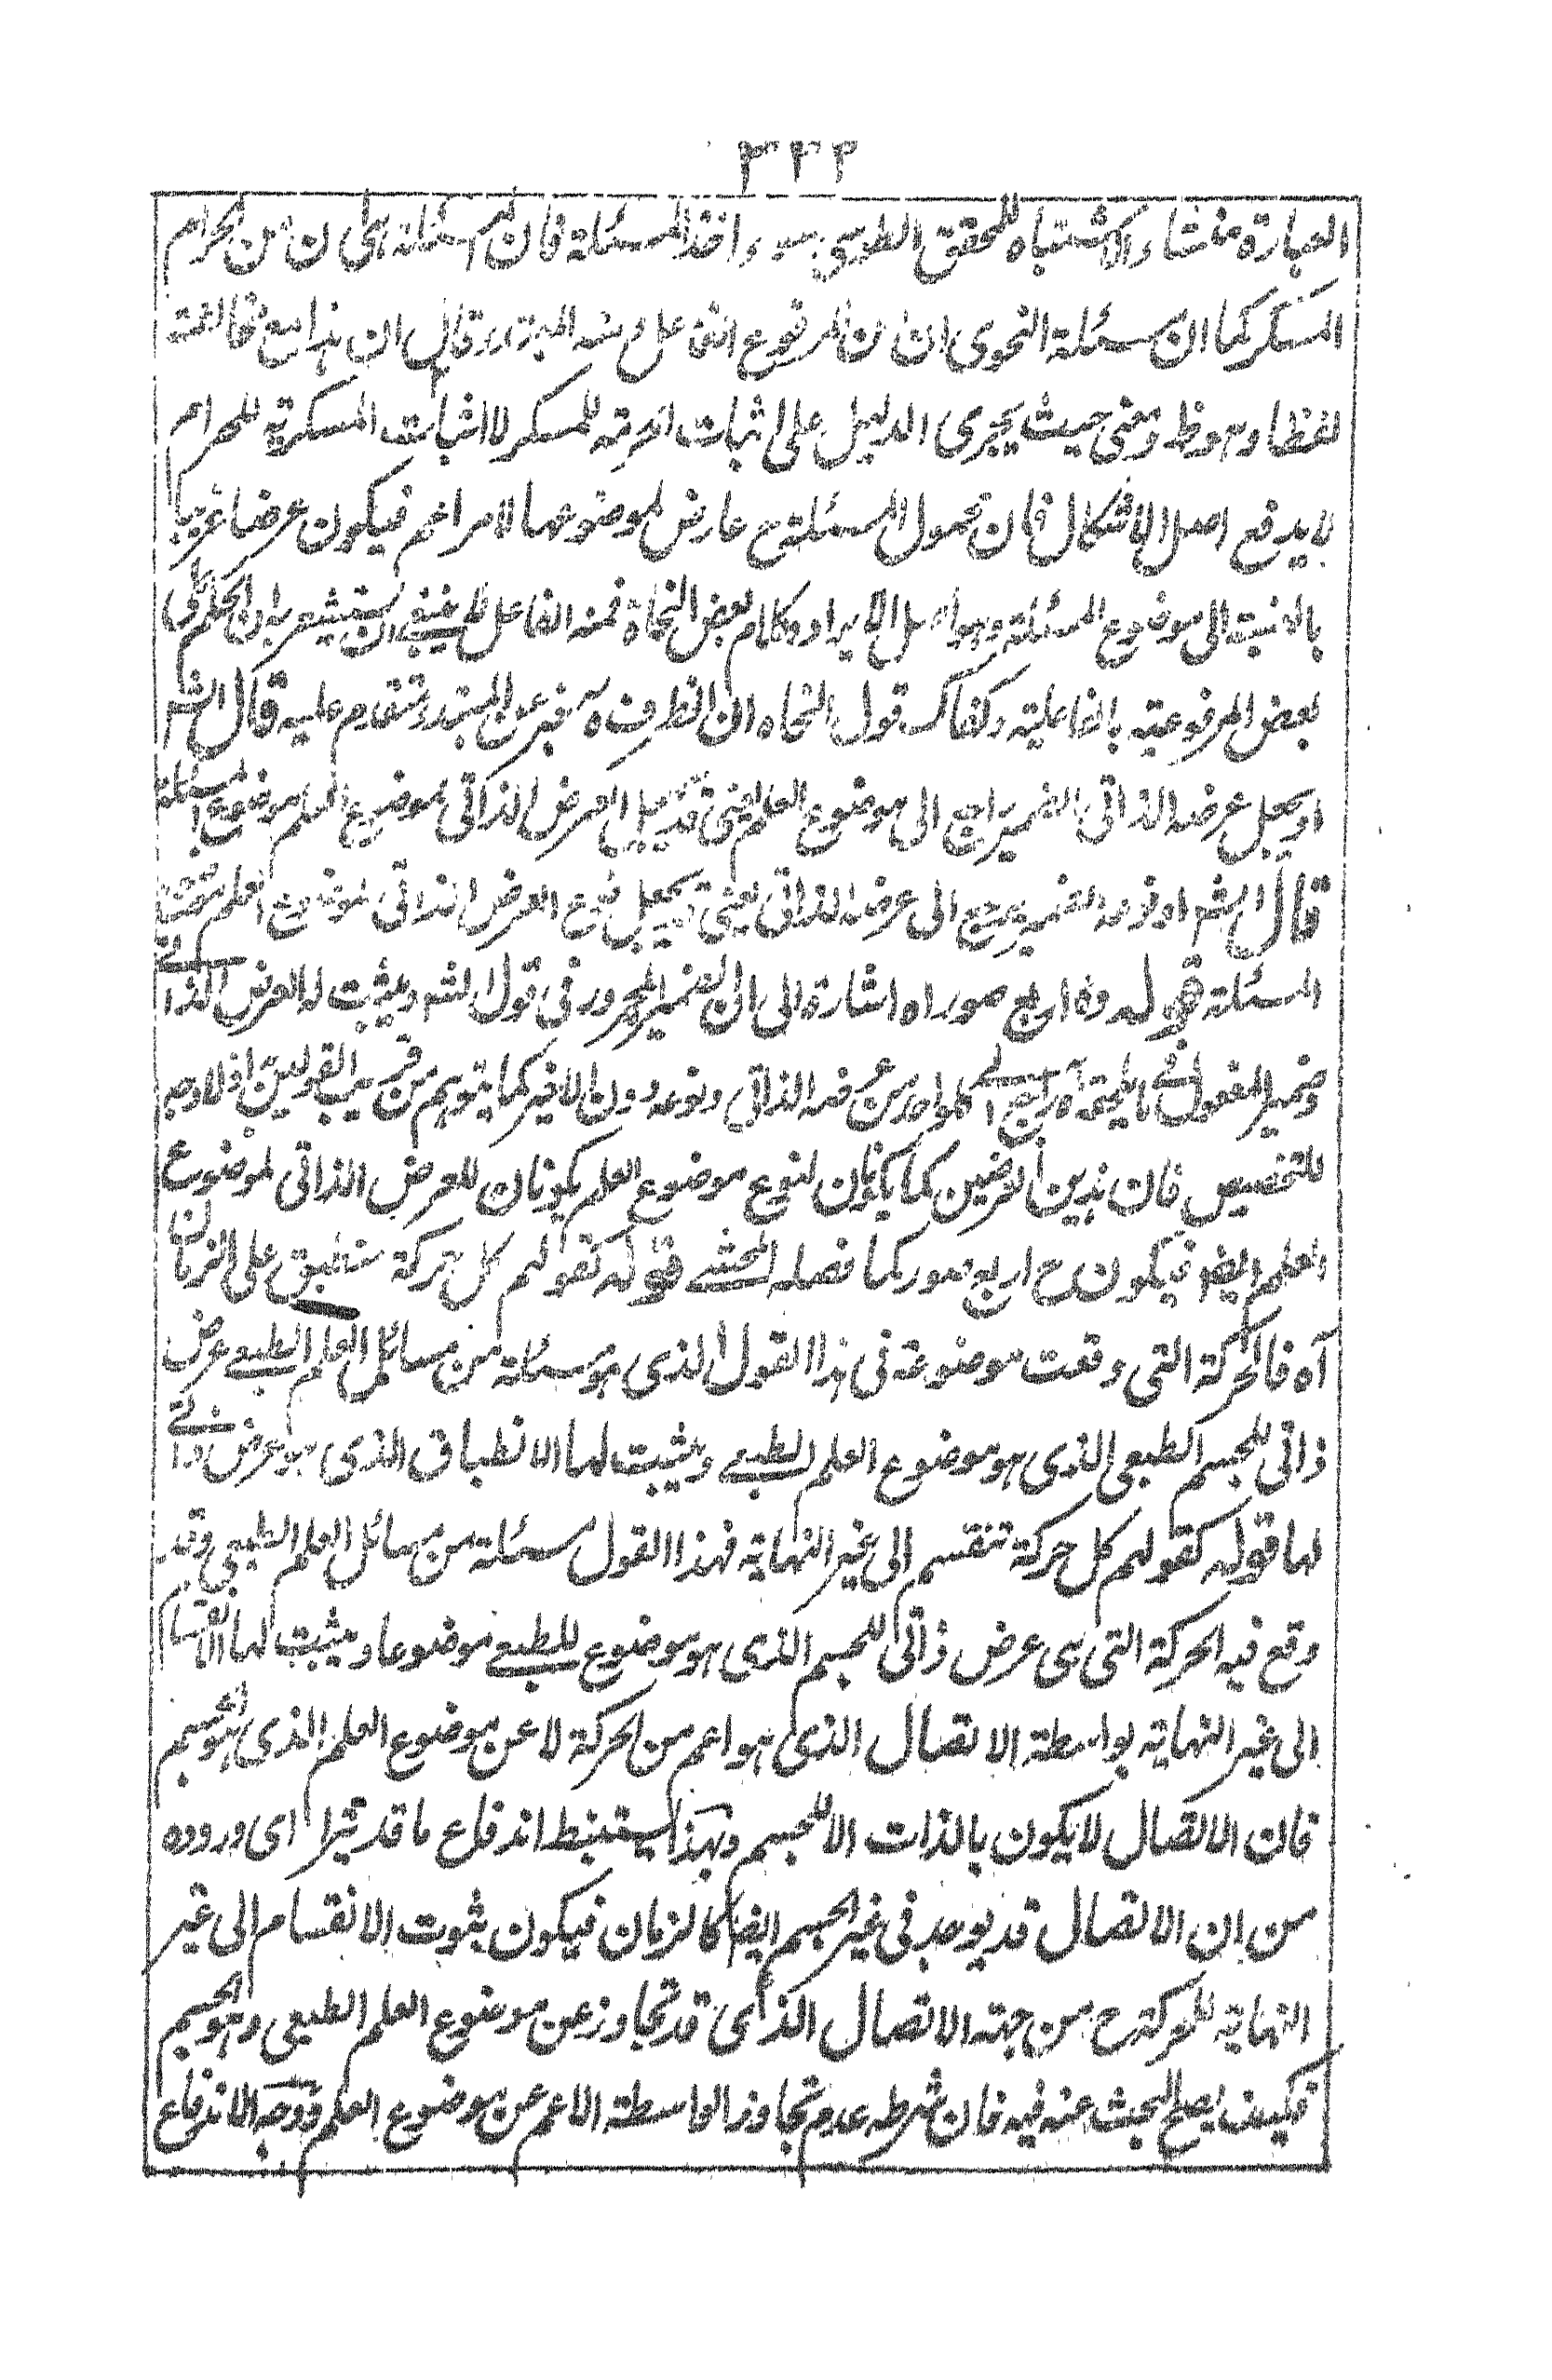 ۳۴۳
العبارة منشاء والاشتباه للمحقق الطوسى واخذ المسئلة فان المسئلة هى ان من الحرام
المسكر كما ان مسئلة النحوى ان من المرفوع الفاعل ومنه المبتدا وقال ان هذا مع مخالفته
لفظا وهو ظ ومعنى حيث يجرى الدليل على اثبات الحرمة للمسكر لا اثبات المسكرية للحرام
لا يدفع اصل الاشكال فان محمول المسئلة ح عارض لموضوعها لامر اعم فيكون عرضا غريبا
بالنسبة الى موضوع المسئلة وهو اصل الايراد وكلام بعض النحاة فمنه الفاعل ان يستشعر بان الحكم على
بعض المرفوعية بالفاعلية وكفاك قول النحاه ان الظرف آه خبر عن المبتدأ متقدم عليه قال الشم
او يجعل عرضه الذاتى الضمير راجع الى موضوع العلم يعنى قد يجعل العرض الذاتى لموضوع العلم موضوع المسئلة
قال الشم او نوعه الضمير يرجع الى عرضه الذاتى يعنى قد يجعل نوع العرض الذاتى لموضوع العلم موضوع
المسئلة قوله وفى اربع صوراه اشارة الى ان الضمير المجرور فى قول الشم ويثبت له العرض الذاتى
وضمير المفعول فى ما يلحقه آه راجع الى كل واحد من عرضه الذاتى ونوعه دون الاخير كما يتوهم من قريب القولين اذ لا وجه
للتخصيص فان هذين العرضين كما يكونان لنوع موضوع العلم يكونان للعرض الذاتى لموضوع
العلم ايضا فيكون ح اربع صور كما فصله المحشى قوله كقولهم كل حركة منطبق على الزمان
آه فالحركة التى وقعت موضوعة فى هذا القول الذى هو مسئلة من مسائل العلم الطبعى عرض
ذاتى للجسم الطبعى الذى هو موضوع العلم الطبعى ويثبت لها الانطباق الذى هو عرض ذاتى
لها قوله كقولهم كل حركة تنقسم الى غير النهاية فهذا القول مسئلة من مسائل العلم الطبيعى وقد
وقع فيه الحركة التى هى عرض ذاتى للجسم الذى هو موضوع للطبعى موضوعا ويثبت لها الانقسام
الى غير النهاية بواسطة الاتصال الذى هو اعم من الحركة لا عن موضوع العلم الذى هو الجسم
فان الاتصال لا يكون بالذات الا للجسم وبهذا يستنبط اندفاع ما قد يترا اى وروده
من ان الاتصال قد يوجد فى غير الجسم ايضا كالزمان فيكون ثبوت الانقسام الى غير
النهاية للحركة ح من جهة الاتصال الذى قد تجاوز عن موضوع العلم الطبعى وهو الجسم
فكيف يصلح البحث عنه فيه فان شرطه عدم تجاوز الواسطة الاعم عن موضوع العلم ووجه الاندفاع